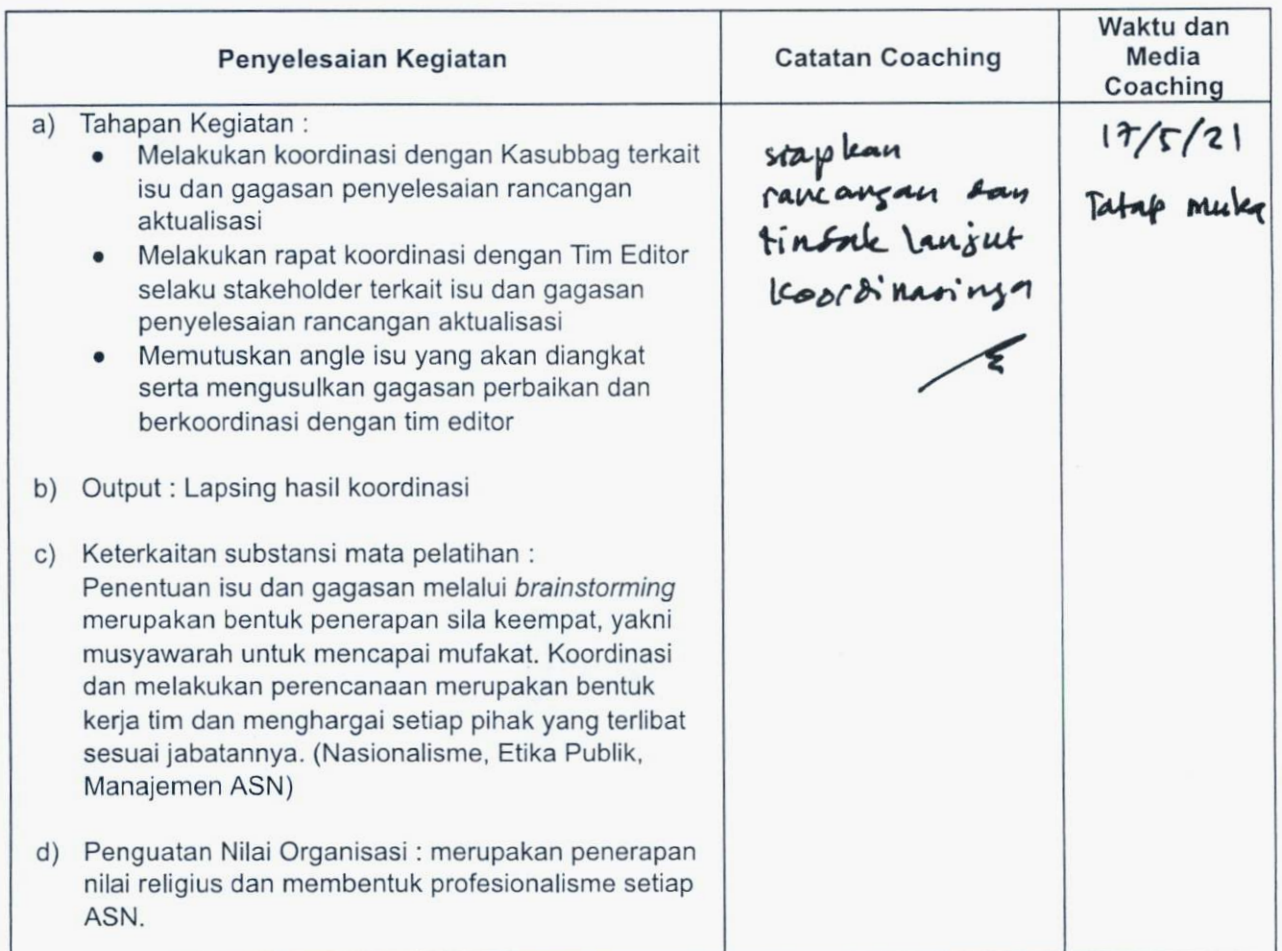 Penyelesaian Kegiatan
Catatan Coaching
Waktu dan
Media
Coaching
a) Tahapan Kegiatan :
• Melakukan koordinasi dengan Kasubbag terkait
isu dan gagasan penyelesaian rancangan
aktualisasi
• Melakukan rapat koordinasi dengan Tim Editor
selaku stakeholder terkait isu dan gagasan
penyelesaian rancangan aktualisasi
• Memutuskan angle isu yang akan diangkat
serta mengusulkan gagasan perbaikan dan
berkoordinasi dengan tim editor
b) Output : Lapsing hasil koordinasi
c) Keterkaitan substansi mata pelatihan :
Penentuan isu dan gagasan melalui brainstorming
merupakan bentuk penerapan sila keempat, yakni
musyawarah untuk mencapai mufakat. Koordinasi
dan melakukan perencanaan merupakan bentuk
kerja tim dan menghargai setiap pihak yang terlibat
sesuai jabatannya. (Nasionalisme, Etika Publik,
Manajemen ASN)
d) Penguatan Nilai Organisasi : merupakan penerapan
nilai religius dan membentuk profesionalisme setiap
ASN.
siapkan
rancangan dan
tindak lanjut
koordinasinya
17/5/21
Tatap muka